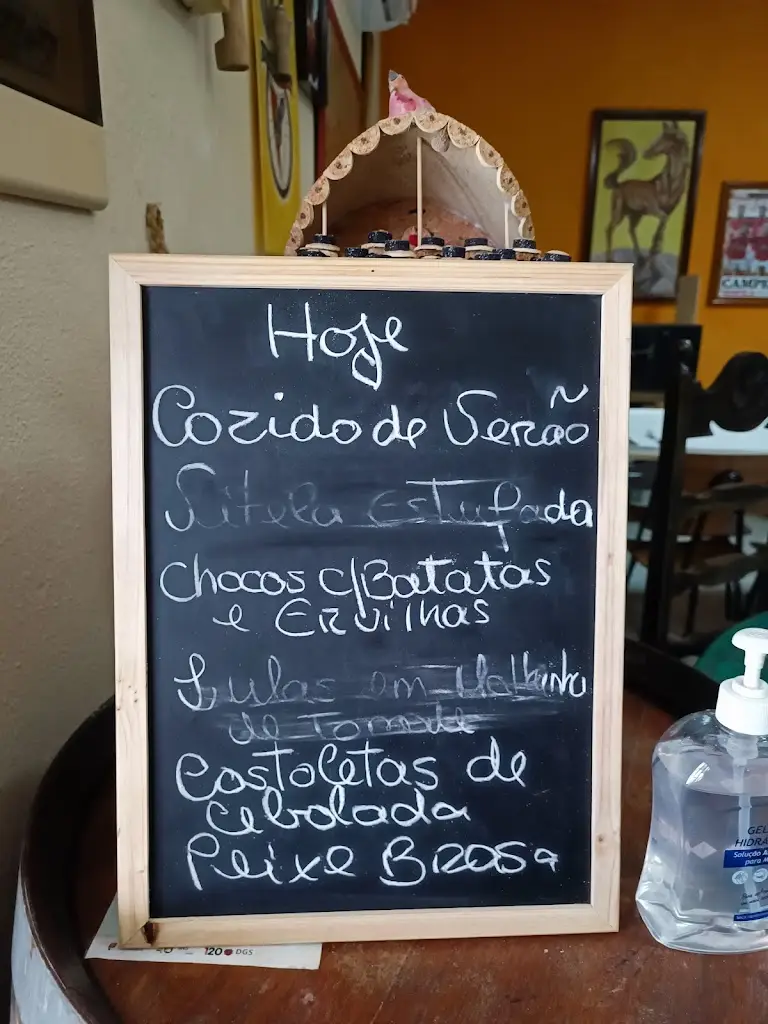 Hoje
Cozido de Verão
Vitela Estufada
Chocos c/Batatas
e Ervilhas
Lulas em Molhinho
de Tomate
Costoletas de
cebolada
Peixe Brasa
CAMPI
GEL
HIDRA
Solução A
para M
120 DGS